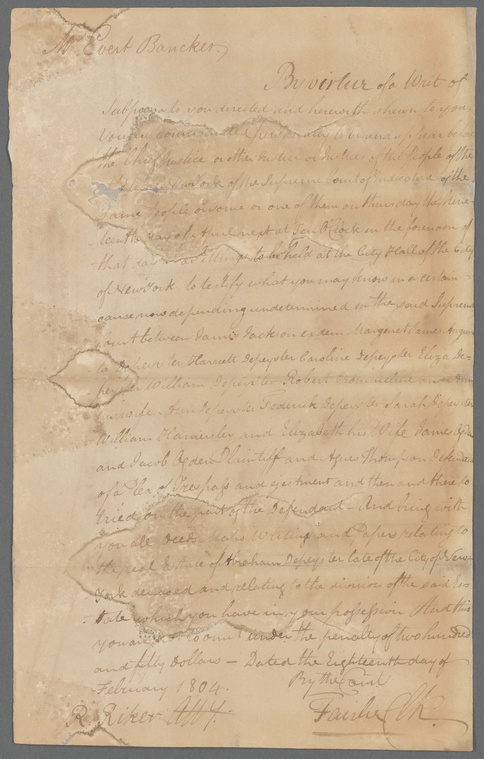 Mr. Evert Bancker,
By virtue of a Writ of
Subpoena to you directed and herewith shewn to you
You are commanded personally to be and appear before
the Chief Justice or other Justice or Justices of the People of the
State of New York of the Supreme Court of of the
same People or some or one of them on thursday the Nine
teenth day of April next at Ten O Clock in the forenoon of
that day to be held at the City Hall of the City
of New York to testify what you may know in a certain
cause now depending undetermined in the said Supreme
Court between James Jackson ex dem Margaret James
Depeyster Harriett Depeyster Caroline Depeyster Eliza De
peyster William Depeyster Robert and
Ann Depeyster Frederick Depeyster Sarah Depeyster
William Hamersley and Elizabeth his Wife James
and Jacob Plaintiff and Thompson
of a Plea of Trespass and ejectment and then and there to be
tried on the part of the Defendant. And bring with
you all Deeds Maps Writing and Papers relating to
the real Estate of Abraham Depeyster late of the City of New
York deceased and relating to the division of the said Es
tate which you have in your possession And this
you are not to omit under the penalty of two hundred
and fifty Dollars — Dated the Eighteenth day of
February 1804.
By the Court
R. Riker Atty.
Fairlie Clk.